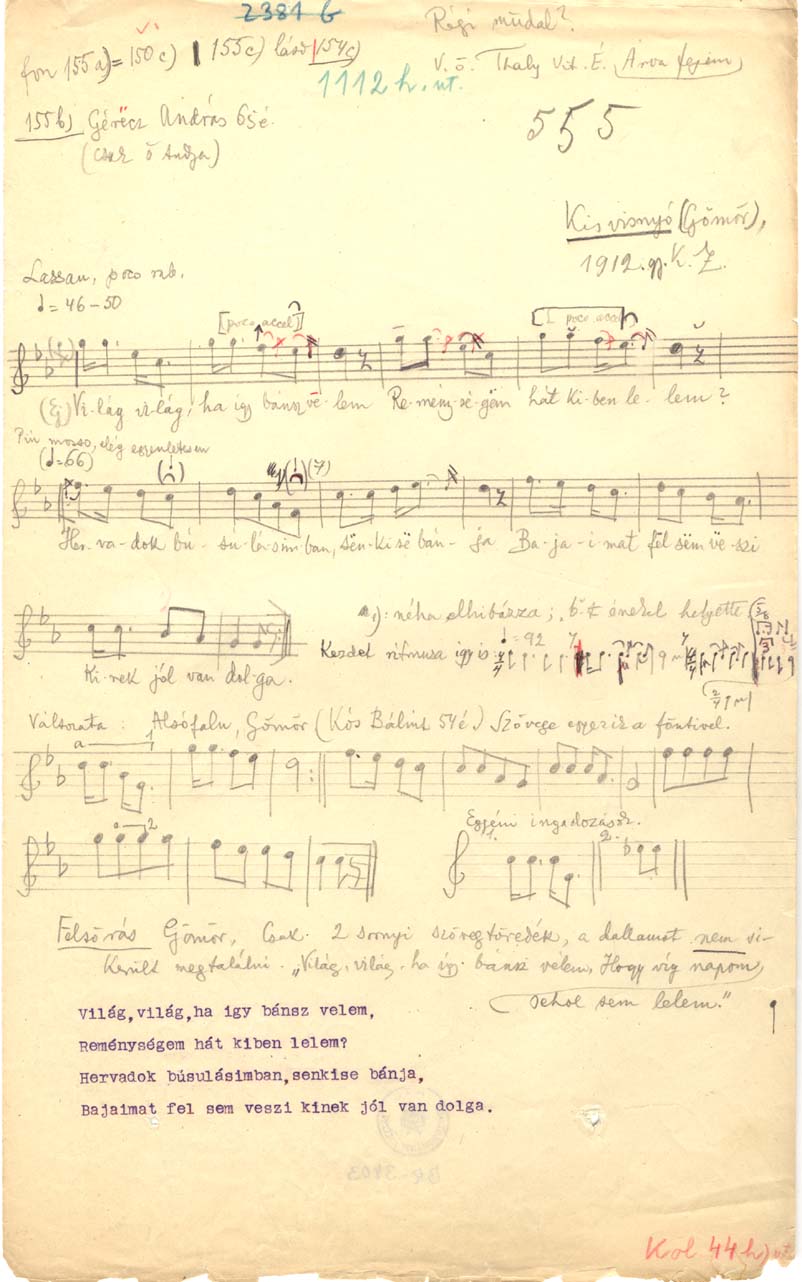 2381 b
Régi műdal?
fon 155a) = 150c) 155c) lásd 154c)
V. ö. Thaly Vit. É. Árva fejem
1112 h. nt.
155b) Gérëcz András 65é.
555
(csak ő tudja)
Kisvisnyó (Gömör),
1912. gy. K. Z.
Lassan, poco rub.
= 46-50
[poco accel.]
[poco accel.]
Vi-lág vi-lág, ha így bánsz vë-lem Re-mény-sé-gëm hát ki-ben le-lem?
Piu mosso, elég egyenletesen
(=66)
Her-va-dok bú-su-lá-sim-ban, sën-ki së bán-ja Ba-ja-i-mat fël sëm vë-szi
1): néha elhibázza; énekel helyette
= 92
Kezdet ritmusa így is:
Ki-nek jól van dol-ga.
Változata: Alsófalu, Gömör (Kós Bálint 54é.) Szövege egyezik a föntivel.
a 1
2
Egyéni ingadozások.
1. 2.
Felsőrás Gömör, Csak 2 sornyi szövegtöredék, a dallamot nem si-
került megtalálni. "Világ, világ, ha így bánsz velem, Hogy víg napom
sehol sem lelem."
Világ,világ,ha igy bánsz velem,
Reménységem hát kiben lelem?
Hervadok búsulásimban,senkise bánja,
Bajaimat fel sem veszi kinek jól van dolga.
Kol 44h) nt.